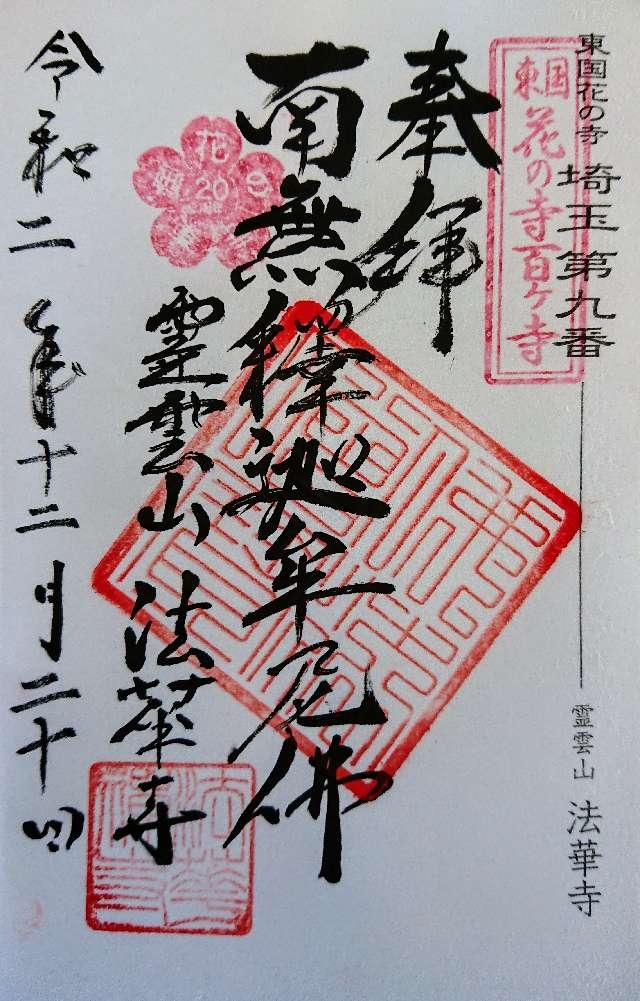 東国花の寺 埼玉第九番 霊雲山 法華寺
東国花の寺百ヶ寺
奉拝
南無釋迦牟尼佛
花
20
霊雲山 法華寺
令和二年十二月二十日